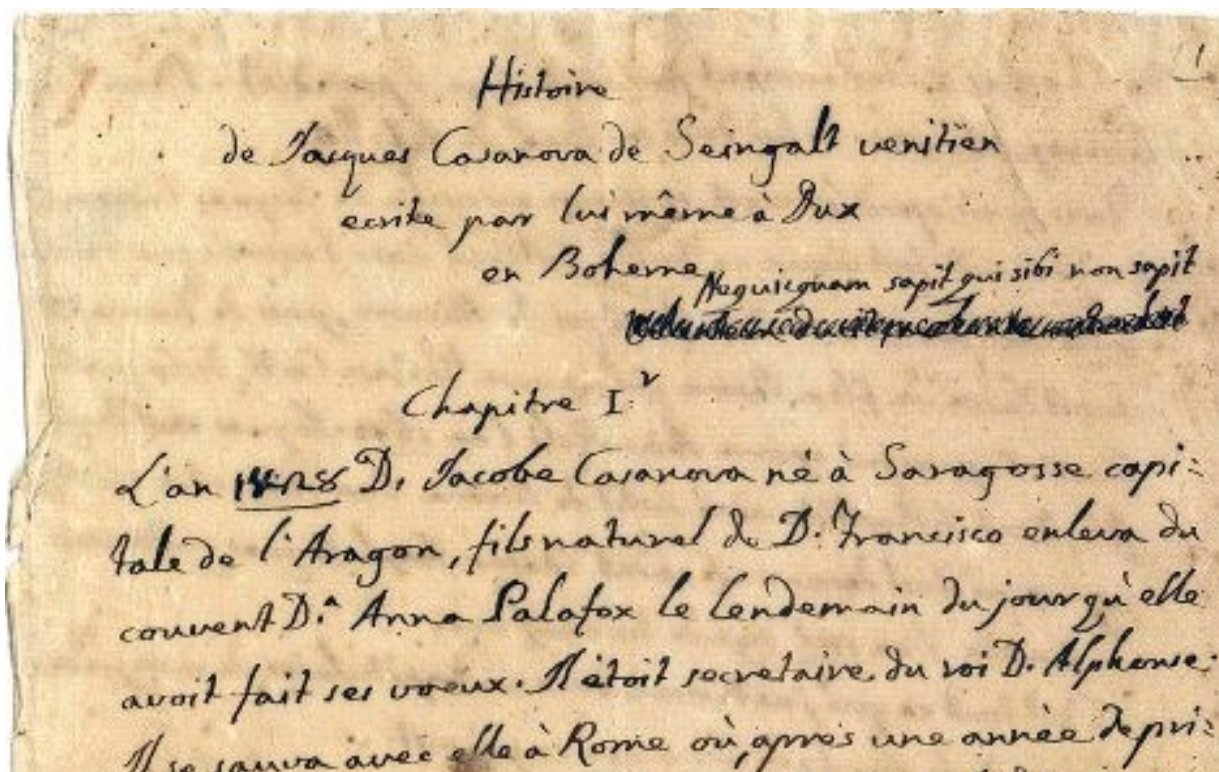 1
Histoire
de Jacques Casanova de Seingalt venitien
ecrite par lui même à Dux
en Boheme
Nequicquam sapit qui sibi non sapit
Chapitre I.r
L'an 1428 D. Jacobe Casanova né à Saragosse capi:
tale de l'Aragon, fils naturel de D. Francisco enleva du
couvent D.a Anna Palafox le lendemain du jour qu'elle
avoit fait ses voeux. Il étoit secretaire du roi D. Alphonse.
Il se sauva avec elle à Rome où, après une année de pri: